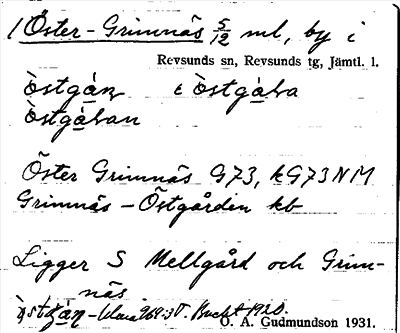 1 Öster-Grimnäs 5/12 ml, by i
Revsunds sn, Revsunds tg, Jämtl. l.
Östgán i Östgába
Östgában
Öster Grimnäs G73, kG73NM
Grimnäs - Östgården kb
Ligger S Mellgård och Grim-
näs
östgán - Bucht 1920.
O. A. Gudmundson 1931.